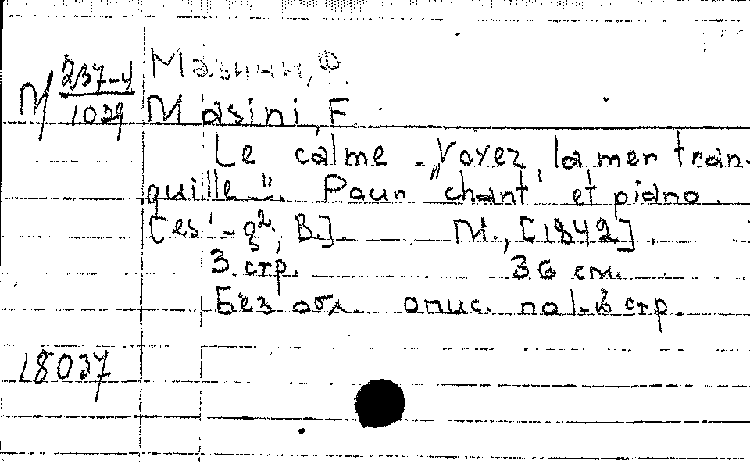 Мазини, Ф.
М 237-4/1029
Masini, F.
Le calme „Voyez la mer tran-
quille". Pour chant et piano.
[es'-g², B.]. М., [1842].
3 стр. 36 см.
Без обл. опис. по 1-й стр.
18037